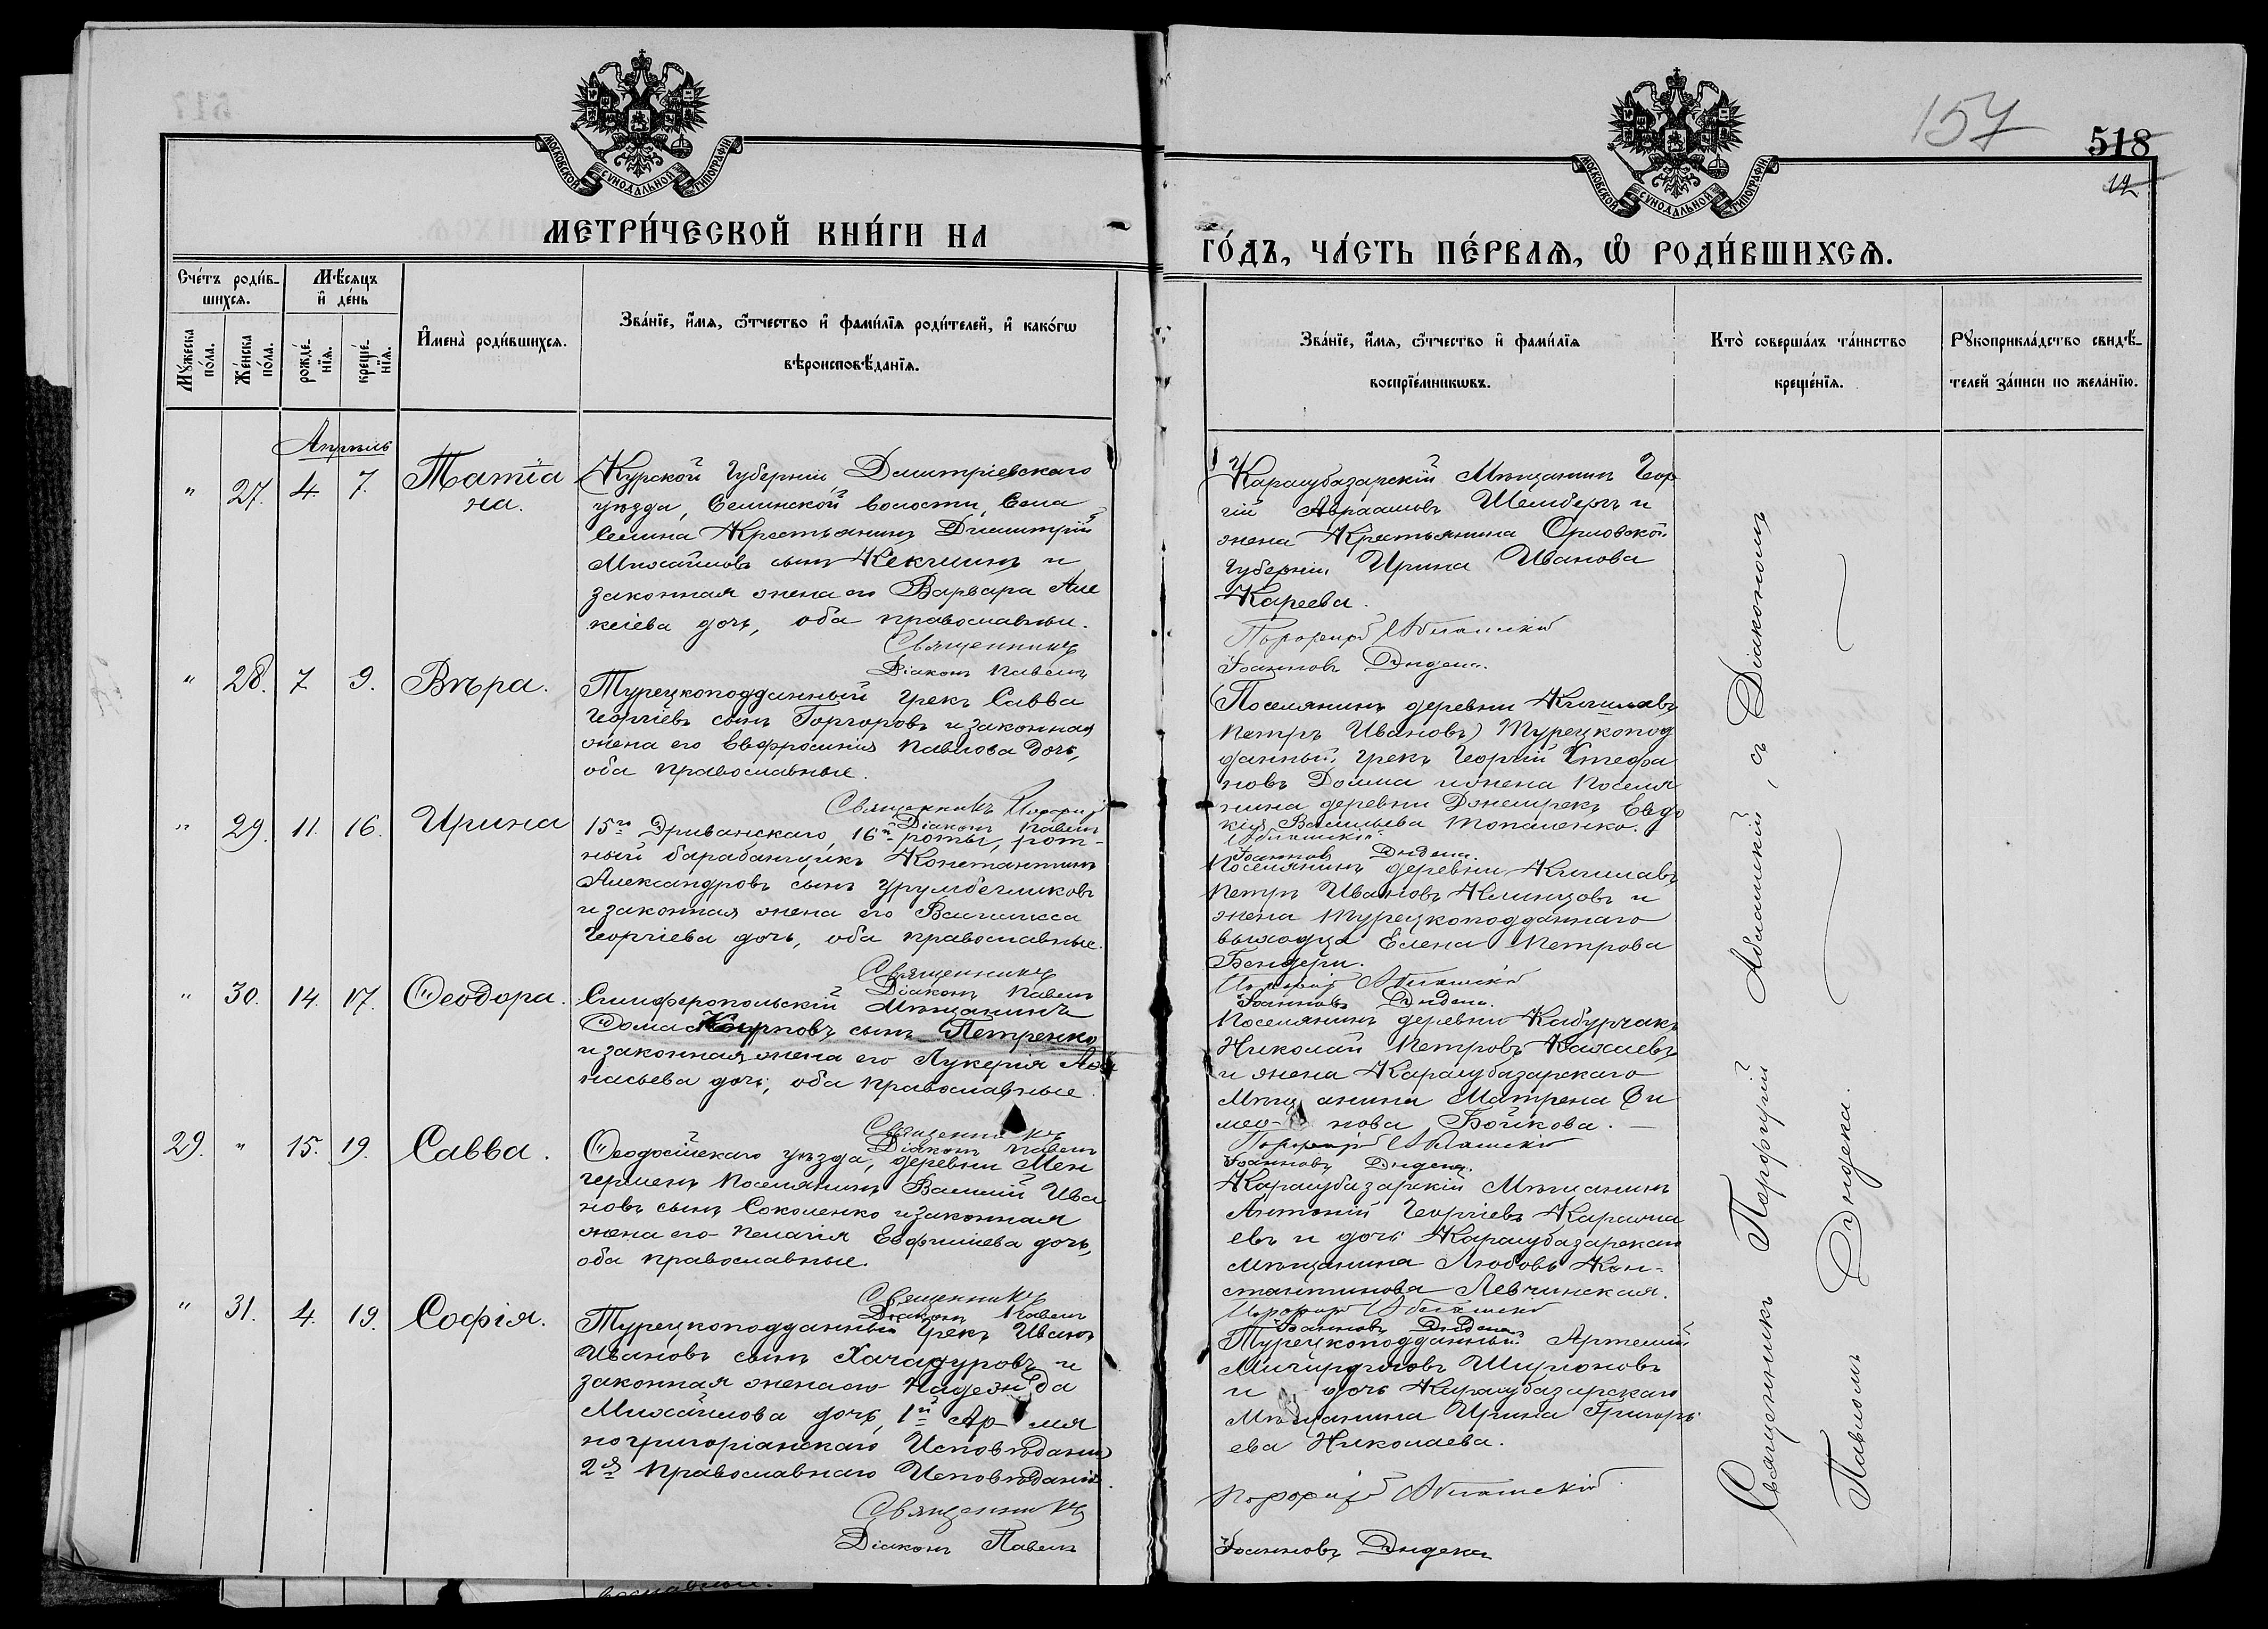 157
518
12
МОСКОВСКОЙ СѴНОДАЛЬНОЙ ТИПОГРАФІИ
МОСКОВСКОЙ СѴНОДАЛЬНОЙ ТИПОГРАФІИ
МЕТРИ́ЧЕСКОЙ КНИ́ГИ НА
ГО́ДЪ, ЧА́СТЬ ПЕ́РВАѦ, Ѡ҆ РОДИ́ВШИХСѦ.
Сче́тъ роди́в-
шихсѧ.
Мꙋ́жеска по́ла.
Же́нска по́ла.
Мѣ́сѧцъ
и҆ де́нь
рожде́-нїѧ.
креще́-нїѧ.
И҆мена̀ роди́вшихсѧ.
Зва́нїе, и҆́мѧ, ѻ҆́тчество и҆ фами́лїѧ роди́телей, и҆ како́гѡ
вѣроисповѣ́данїѧ.
Зва́нїе, и҆́мѧ, ѻ҆́тчество и҆ фами́лїѧ
воспрїе́мникѡвъ.
Кто̀ соверша́лъ та́инство
креще́нїѧ.
Рꙋкоприкла́дство свидѣ́-
телей за́писи по жела́нїю.
Апрѣль
" 27. 4. 7. Татіа
на.
Курской Губерніи, Дмитріевскаго
уѣзда, Селинской волости, Села
Селина Крестьянинъ Димитрій
Михайловъ сынъ Кекчинъ и
законная жена его Варвара Але
ксіева дочь, оба православные.
Священникъ
Діаконъ Павелъ
Карасубазарскій Мѣщанинъ Геор
гій Авраамовъ Шемберъ и
жена Крестьянина Орловской
Губерніи Ирина Иванова
Кареева.
Порфирій Абламскій
Іоанновъ Дидека.
" 28. 7 9. Вѣра.
Турецкоподданный грекъ Савва
Георгіевъ сынъ Горгоровъ и законная
жена его Евфросинія Павлова дочь,
оба православные.
Священникъ Порфирій
Діаконъ Павелъ
(Поселянинъ деревни Кишлавъ
Петръ Ивановъ) Турецкопод
данный, грекъ Георгій Стефа
новъ Долма и жена поселя
нина деревни Джемрекъ Евдо
кія Васильева Топаленко.
Абламскій
Іоанновъ Дидека.
" 29. 11. 16. Ирина
15го Эриванскаго, 16й роты, рот-
ный барабанщикъ Константинъ
Александровъ сынъ Урумбегликовъ
и законная жена его Василисса
Георгіева дочь, оба православные.
Священникъ
Діаконъ Павелъ
Поселянинъ деревни Кишлавъ
Петръ Ивановъ Климцовъ и
жена турецкоподданнаго
выходца Елена Петрова
Бендери.
Порфирій Абламскій
Іоанновъ Дидека.
" 30. 14. 17. Ѳеодора.
Симферопольскій Мѣщанинъ
Ѳома Карповъ сынъ Петренко
и законная жена его Лукерія Аѳа
насьева дочь, оба православные.
Священникъ
Діаконъ Павелъ
Поселянинъ деревни Кабурчакъ
Николай Петровъ
и жена Карасубазарскаго
Мѣщанина Матрена Си
мео-нова Бойкова.
Порфирій Абламскій
Іоанновъ Дидека.
29. " 15. 19. Савва.
Ѳеодосійскаго уѣзда, деревни Мен
герменъ Поселянинъ Василій Ива
новъ сынъ Соколенко и законная
жена его Пелагія Евфиміева дочь,
оба православные.
Священникъ
Діаконъ Павелъ
Карасубазарскій Мѣщанинъ
Антоній Георгіевъ
евъ и дочь Карасубазарскаго
мѣщанина Любовь Кон-
стантинова Левчинская.
Порфирій Абламскій
Іоанновъ Дидека
" 31. 4. 19. Софія.
Турецкоподданный Грекъ Иванъ
Ивановъ сынъ Хачадуровъ и
законная жена его Надежда
Михайлова дочь, 1й Ар-мя
ногригоріанскаго Исповѣданія
2я Православнаго Исповѣданія.
Священникъ
Діаконъ Павелъ
Турецкоподданный Артемій
Ширионовъ
и дочь Карасубазарскаго
Мѣщанина Ирина Григорь
ева Николаева.
Порфирій Абламскій
Іоанновъ Дидека
Священникъ Порфирій Абламскій, съ Діакономъ
Павломъ Дидека.